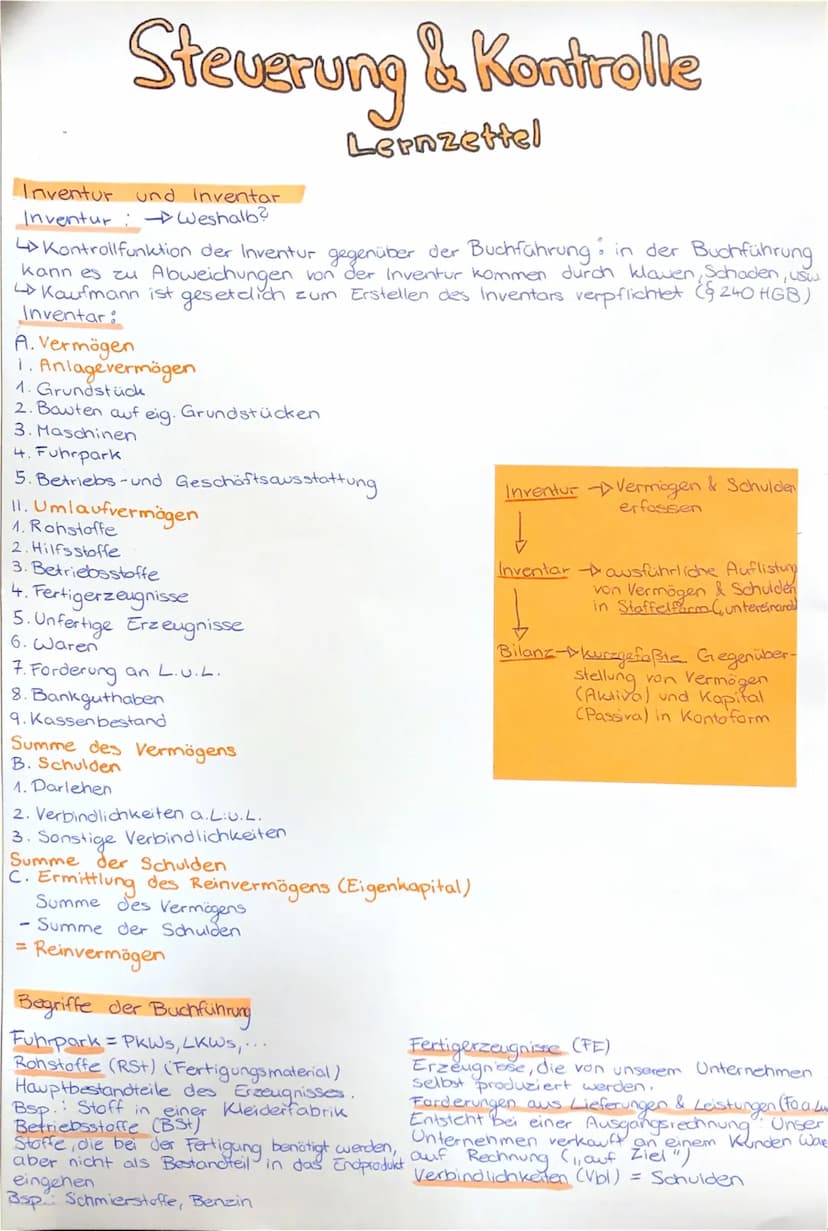 Steuerung & Kontrolle
Lernzettel
Inventur und Inventar
Inventur : → Weshalb?
↳ Kontrollfunktion der Inventur gegenüber der Buchführung: in der Buchführung
kann es zu Abweichungen von der Inventur kommen durch klauen, Schaden, usw
↳ Kaufmann ist gesetzlich zum Erstellen des Inventars verpflichtet (§ 240 HGB)
Inventar:
A. Vermögen
I. Anlagevermögen
1. Grundstück
2. Bauten auf eig. Grundstücken
3. Maschinen
4. Fuhrpark
5. Betriebs- und Geschäftsausstattung
II. Umlaufvermögen
1. Rohstoffe
2. Hilfsstoffe
3. Betriebsstoffe
4. Fertigerzeugnisse
5. Unfertige Erzeugnisse
6. Waren
7. Forderung an L.u.L.
8. Bankguthaben
9. Kassenbestand
Summe des Vermögens
B. Schulden
1. Darlehen
2. Verbindlichkeiten a.L.u.L.
3. Sonstige Verbindlichkeiten
Summe der Schulden
C. Ermittlung des Reinvermögens (Eigenkapital)
Summe des Vermögens
- Summe der Schulden
= Reinvermögen
Inventur → Vermögen & Schulden
erfassen
↓
Inventar → ausführliche Auflistung
von Vermögen & Schulden
in Staffelform (untereinand
↓
Bilanz → kurzgefaßte Gegenüber-
stellung von Vermögen
(Aktiva) und Kapital
(Passiva) in Kontoform
Begriffe der Buchführung
Fuhrpark = PKWs, LKWs, ...
Rohstoffe (RSt) (Fertigungsmaterial)
Hauptbestandteile des Erzeugnisses.
Bsp.: Stoff in einer Kleiderfabrik
Betriebsstoffe (BSt)
Stoffe, die bei der Fertigung benötigt werden,
aber nicht als Bestandteil in das Endprodukt
eingehen
Bsp.: Schmierstoffe, Benzin
Fertigerzeugnisse (FE)
Erzeugnisse, die von unserem Unternehmen
selbst produziert werden.
Forderungen aus Lieferungen & Leistungen (Fo a Lu
Entsteht bei einer Ausgangsrechnung: Unser
Unternehmen verkauft an einem Kunden Wa
auf Rechnung („auf Ziel")
Verbindlichkeiten (Vbl) = Schulden